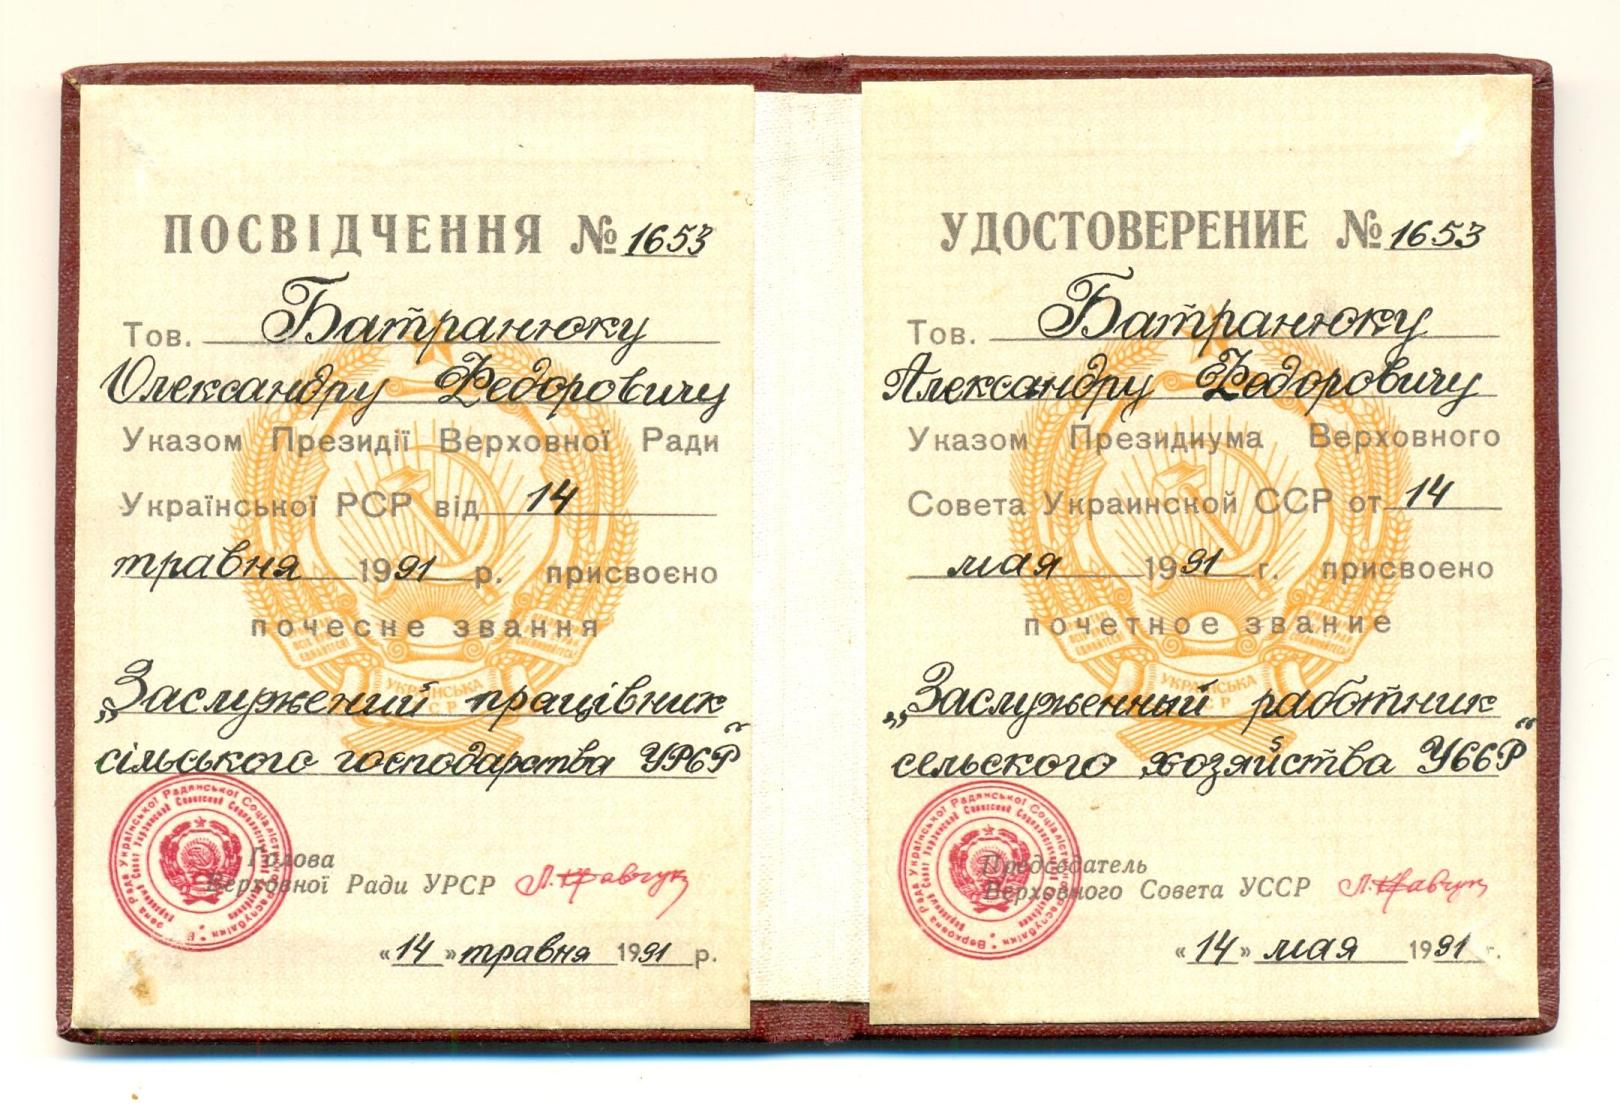 ПОСВІДЧЕННЯ № 1653
Тов. Батранюку
Олександру Федоровичу
Указом Президії Верховної Ради
Української РСР від 14
травня 1991 р. присвоєно
почесне звання
„Заслужений працівник
сільського господарства УРСР“
УКРАЇНСЬКА
Голова
Верховної Ради УРСР Л. Кравчук
«14» травня 1991 р.
УДОСТОВЕРЕНИЕ № 1653
Тов. Батранюку
Александру Федоровичу
Указом Президиума Верховного
Совета Украинской ССР от 14
мая 1991 г. присвоено
почетное звание
„Заслуженный работник
сельского хозяйства УССР“
УКРАЇНСЬКА
Председатель
Верховного Совета УССР Л. Кравчук
«14» мая 1991 г.